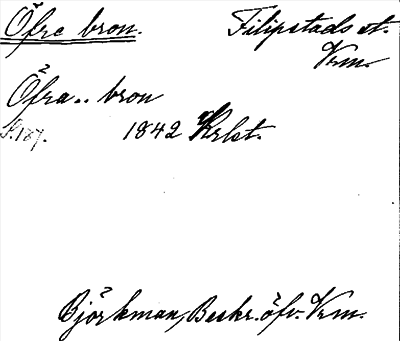 Öfre bron. Filipstads st.
Vrm.
Öfra.. bron
S. 187. 1842 Krlst.
Björkman, Beskr. öfv. Vrm.